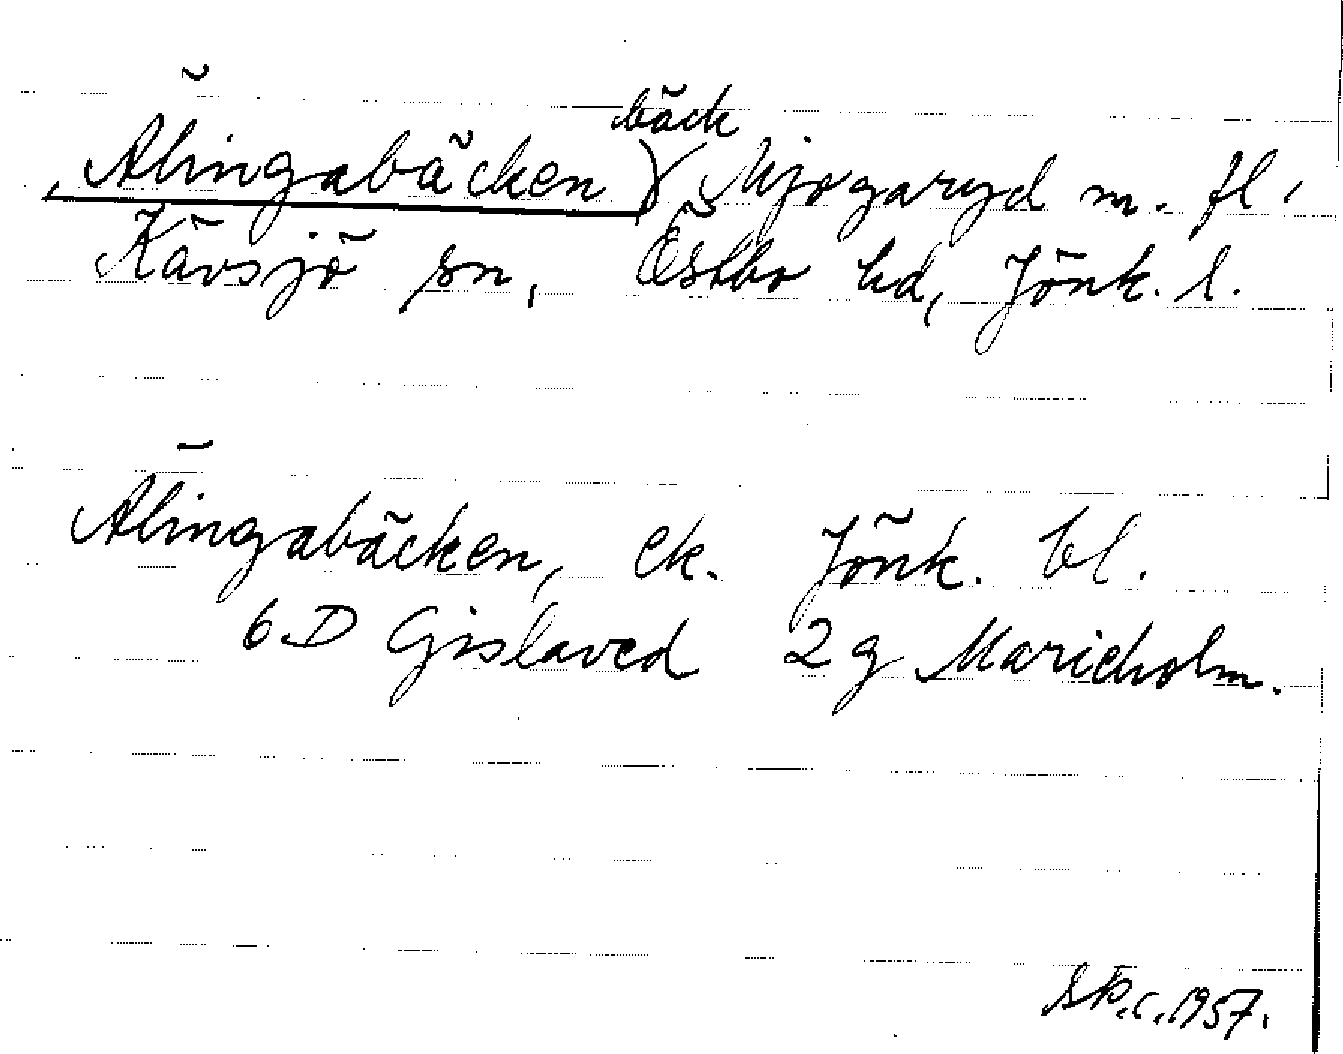 bäck
Älingabäcken) Mjogaryd m. fl.
Kävsjö sn, Östbo hd, Jönk. l.
Älingabäcken, ek. Jönk. bl.
6D Gislaved 2g Marieholm.
1957.